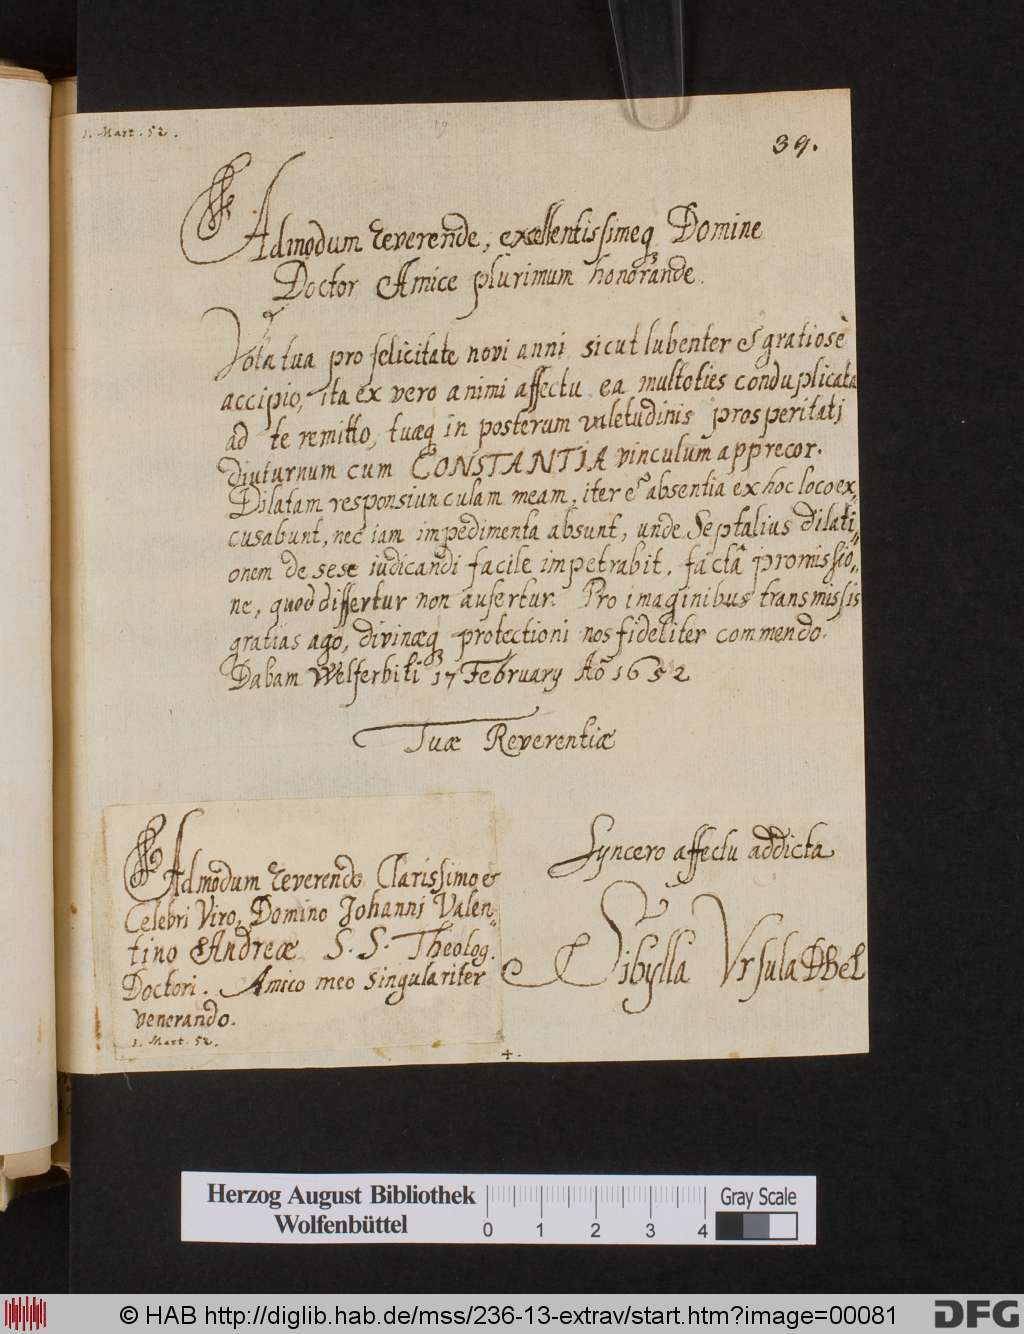 1. Mart. 52.
39.
Admodum reverende, excellentissimeq3 Domine
Doctor Amice plurimum honorande.
Vota tua pro felicitate novi anni sicut lubenter & gratiosè
accipio, ita ex vero animi affectu ea multoties conduplicata
ad te remitto, tuæq3 in posterum valetudinis prosperitatj
diuturnum cum CONSTANTIA vinculum apprecor.
Dilatam responsiunculam meam, iter & absentia ex hoc loco ex„
cusabunt, nec iam impedimenta absunt, unde Septalius dilati„
onem de sese iudicandi facile impetrabit, factâ promissio„
ne, quod differtur non aufertur. Pro imaginibus transmissis
gratias ago, divinæq3 protectioni nos fideliter commendo.
Dabam Welferbiti 17 February Aõ 1652
Tuæ Reverentiæ
Syncero affectu addicta
Sibylla Vrsula DBeL
Admodum reverendo Clarissimo &
Celebri Viro, Domino Johannj Valen„
tino Andreæ S. S. Theolog.
Doctori. Amico meo singulariter
venerando.
1. Mart. 52.
+.
Herzog August Bibliothek
Wolfenbüttel
0 1 2 3 4
Gray Scale
© HAB http://diglib.hab.de/mss/236-13-extrav/start.htm?image=00081
DFG